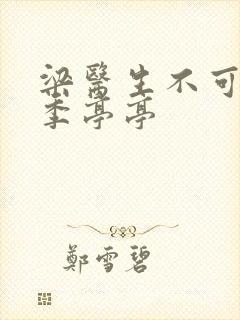 梁醫生不可
季亭亭
鄭雪碧